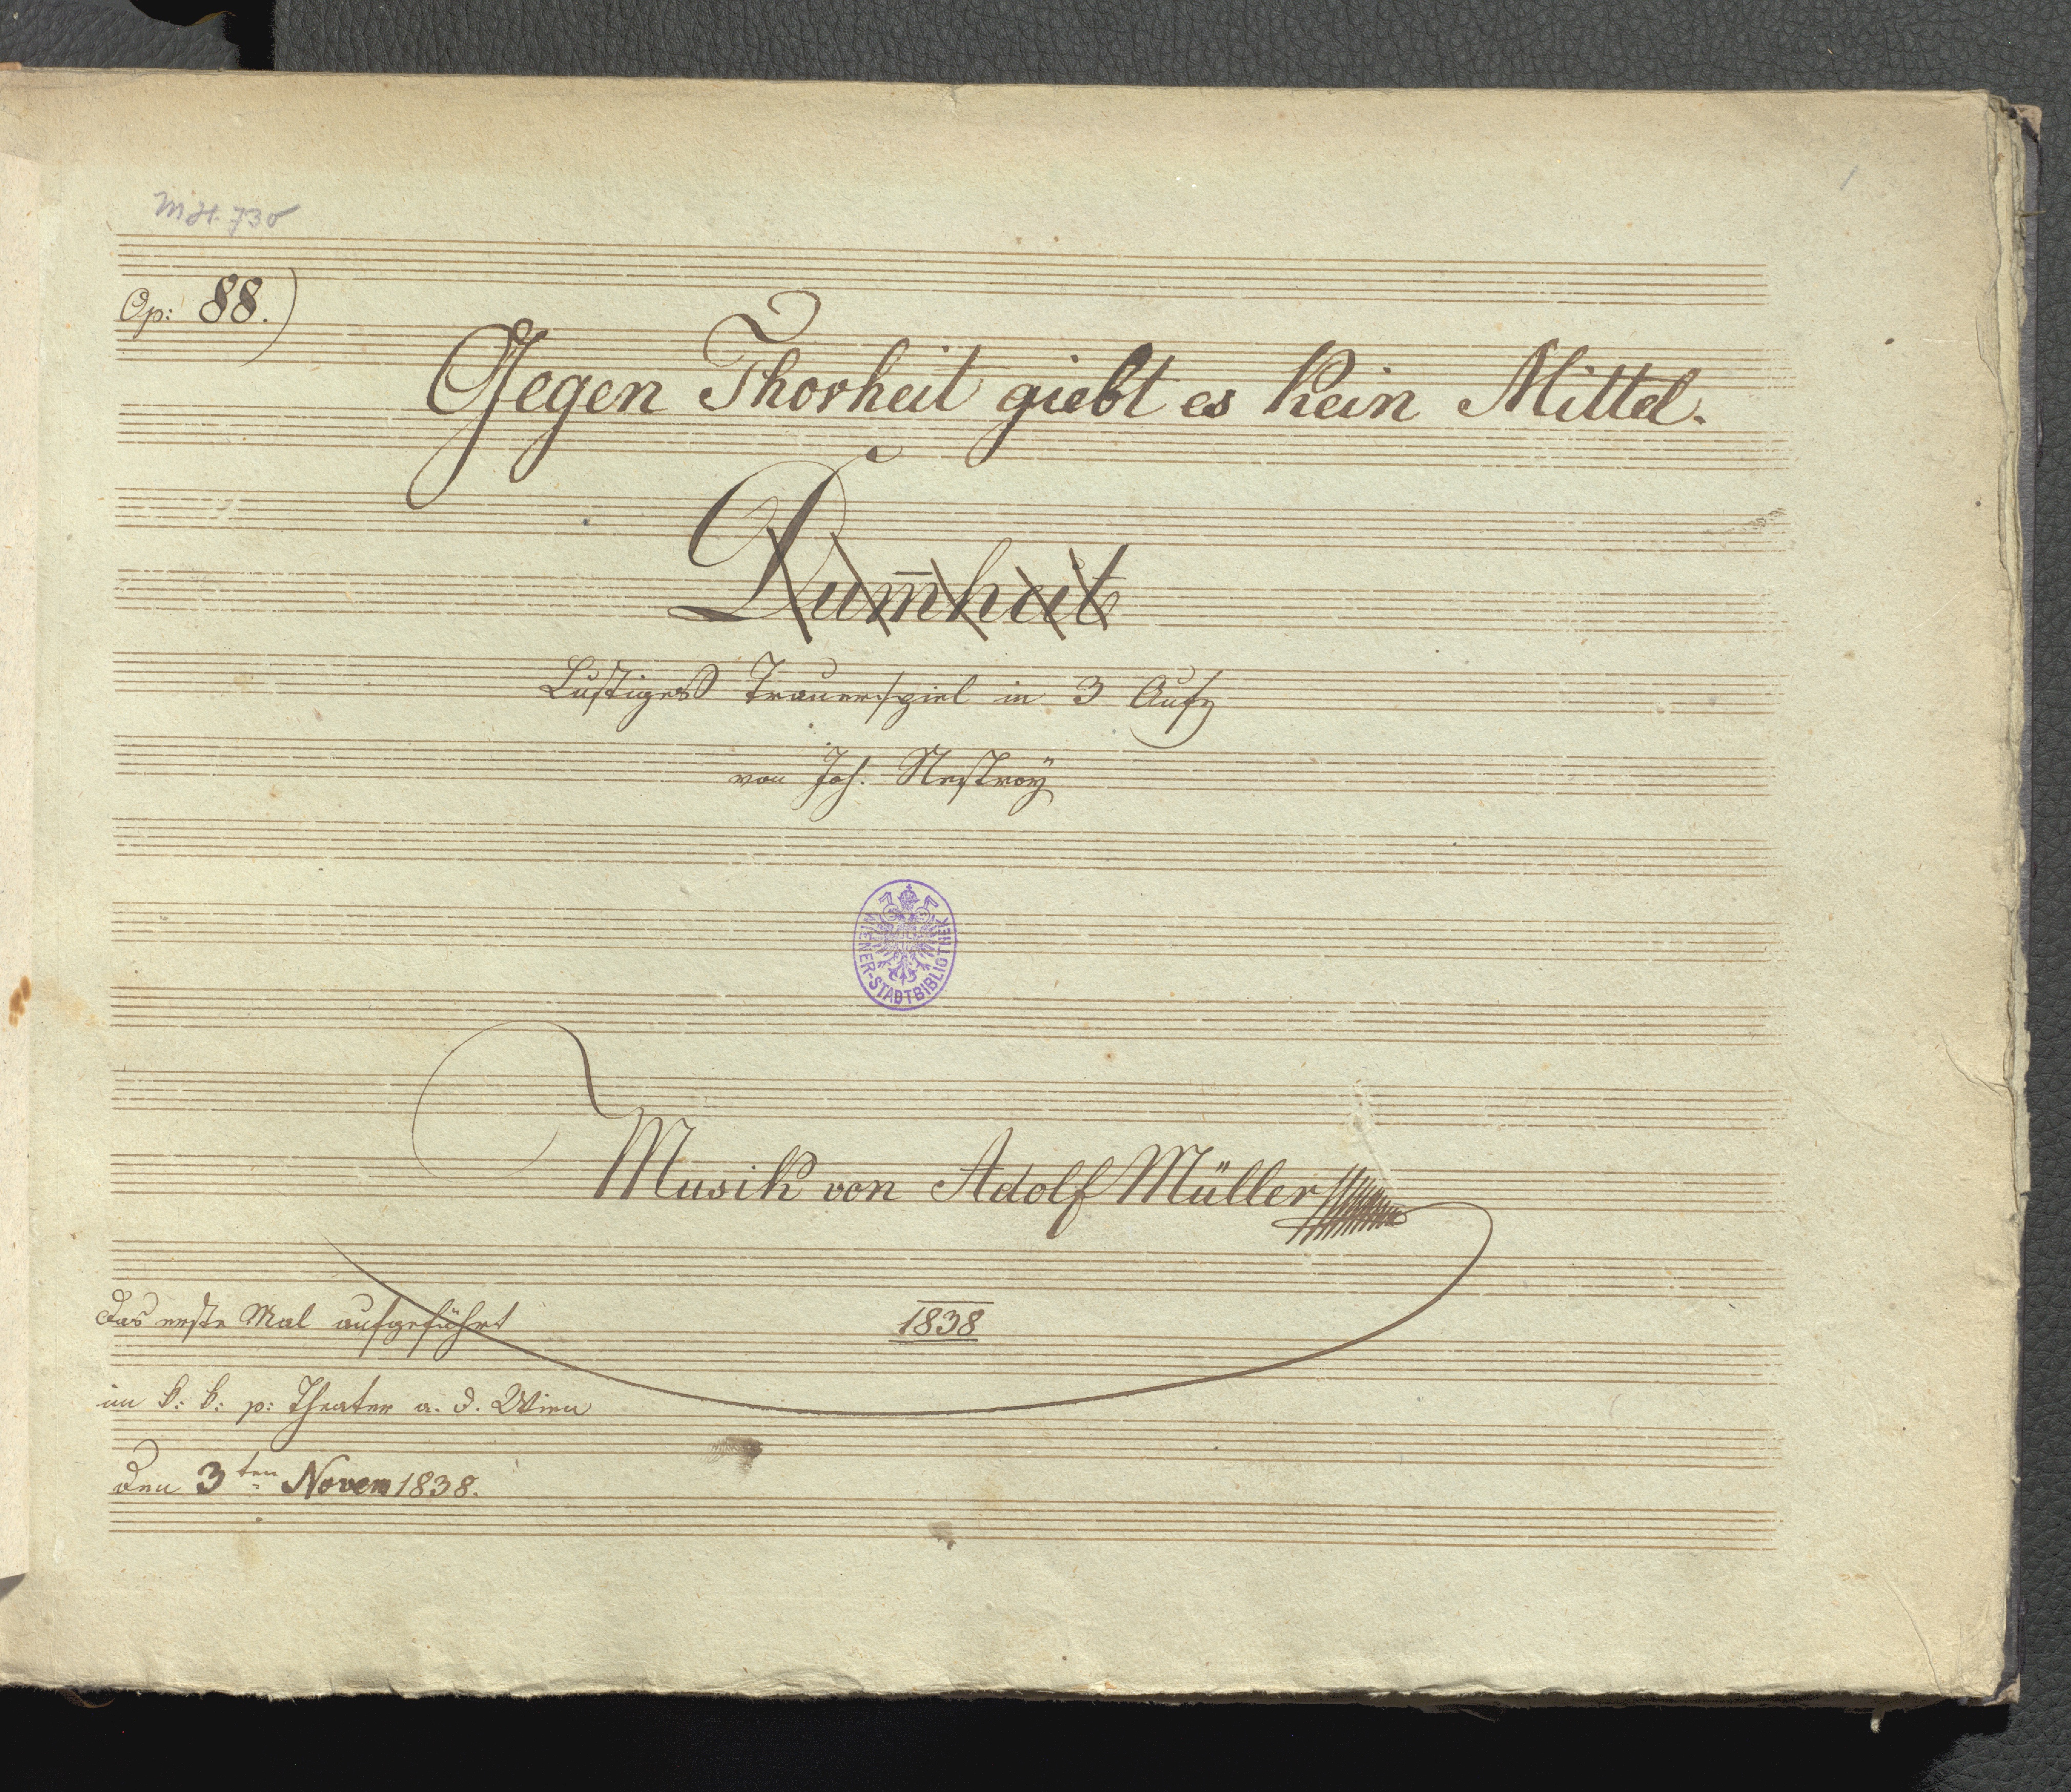 MH. 730
1
Op: 88.)
Gegen Thorheit giebt es kein Mittel.
Dum̄heit
Lustiges Trauerspiel in 3 Aufz
von Joh. Nestroÿ
WIENER-STADTBIBLIOTHEK
Musik von Adolf Müller
1838
Das erste Mal aufgeführt
im k: k: p: Theater a. d. Wien
den 3ten Novem 1838.